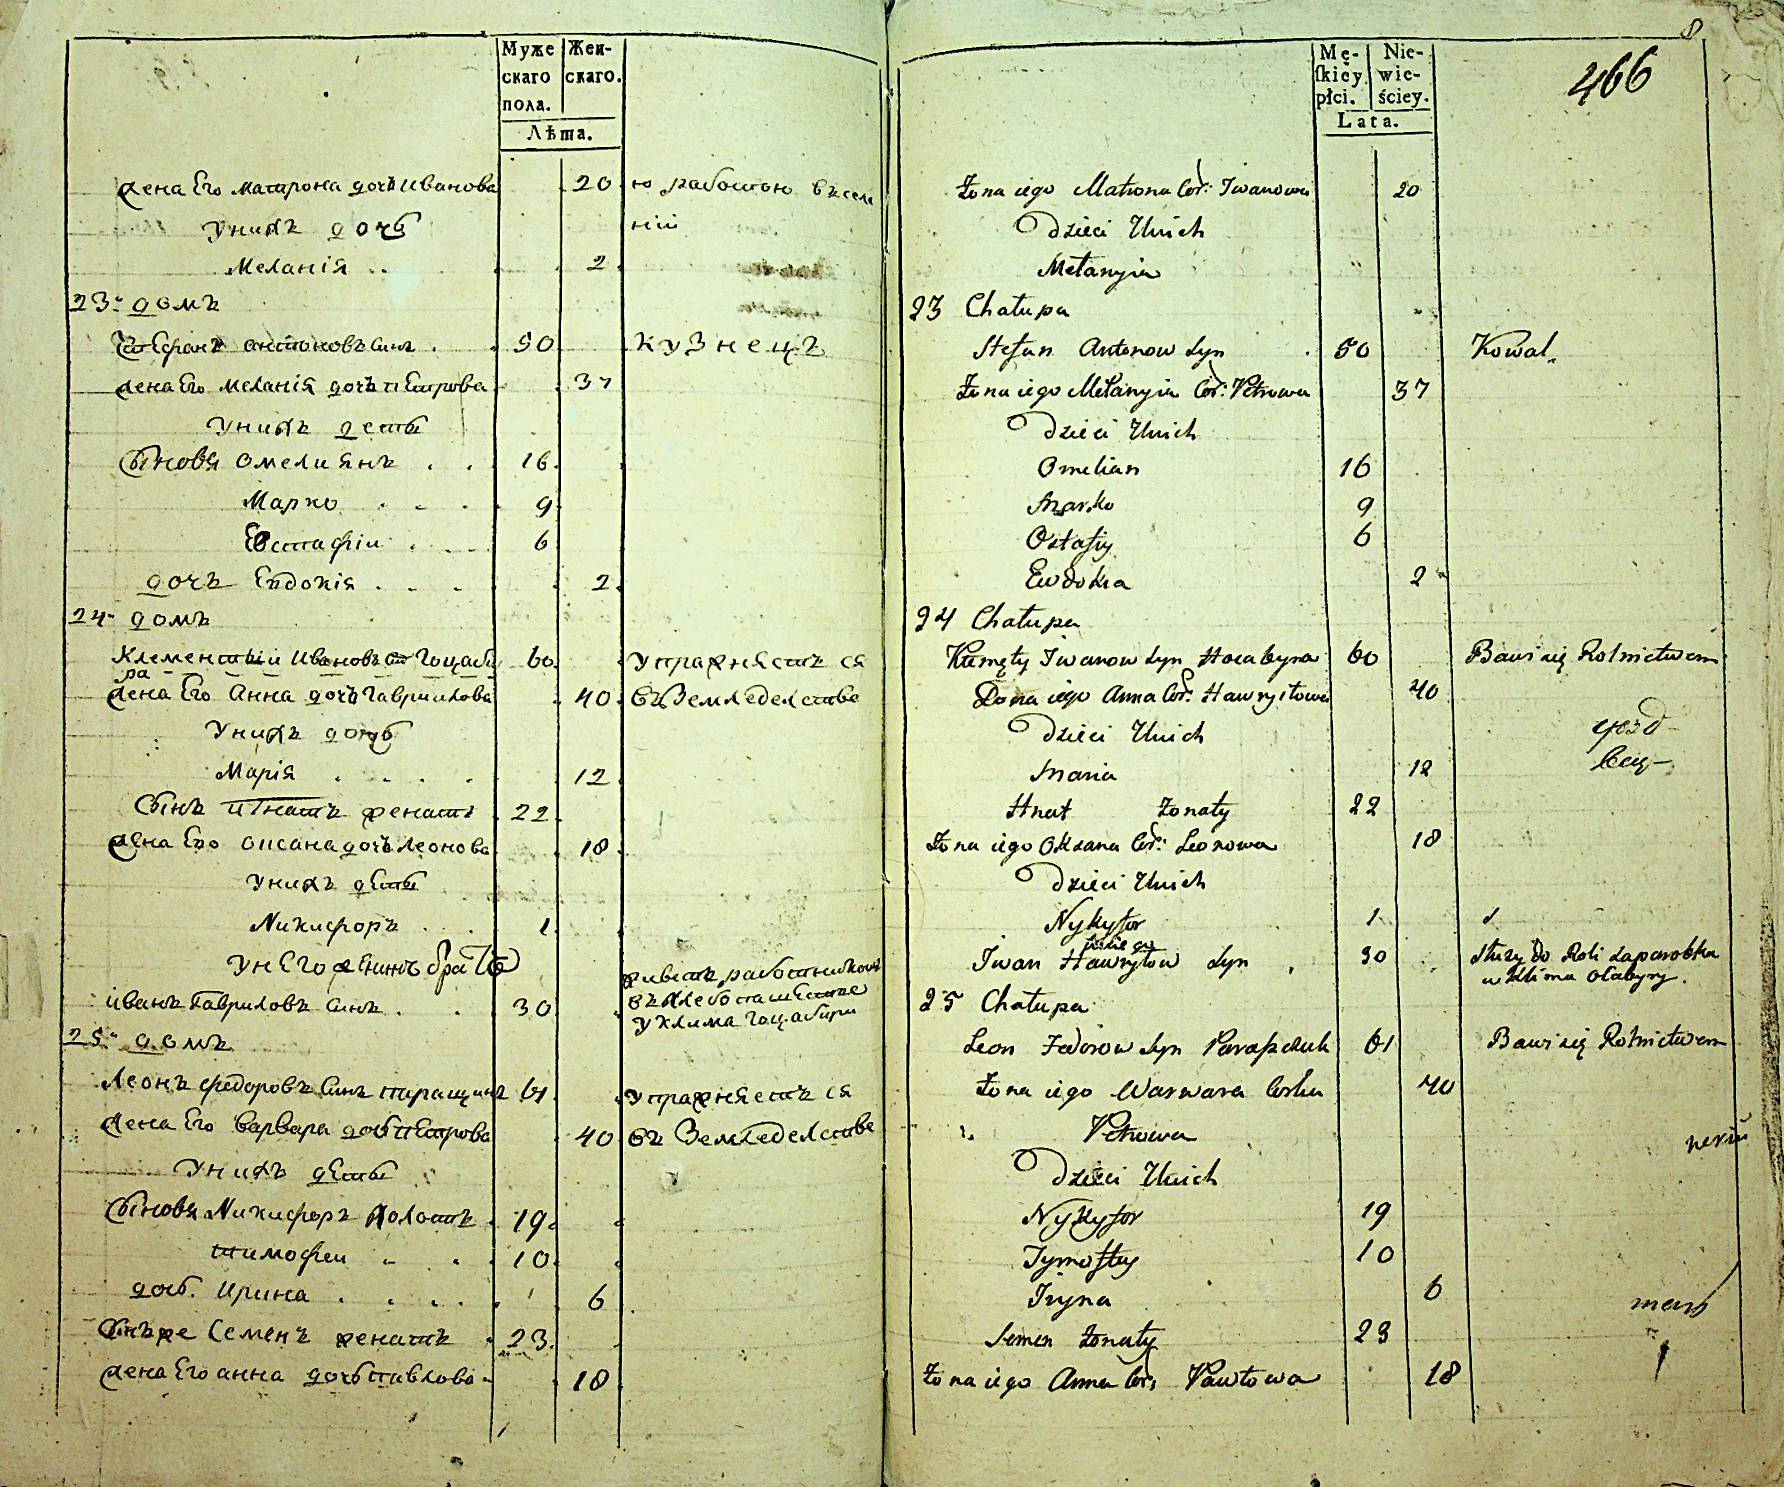 Муже
скаго
пола.
Жен-
скаго.
Лѣта.
жена Его матрона дочь Иванова 20 ю работою вѣселе
унихъ дочь ніи
Меланія . . 2
23. домъ
Стефанъ антоновъ синъ . 50 кузнецъ
жена Его меланія дочъ пЕтрова 37
унихъ дети
Сыновя омелиянъ . . 16
Марко . . . 9
Евстафіи . . . 6
дочъ Евдокія . . . 2
24. домъ
Климентіи Ивановъ сн Гоцабы 60 упражняетъ ся
ра
жена Его Анна дочь Гаврилова 40 въ Земледелстве
Унихъ дочь
Марія . . . . 12
Сынъ игнатъ женатъ 22
жена Его оксана дочъ леонова 18
унихъ дЕты
Никифоръ . . 1
унЕго жЕнинъ братъ
живетъ работникомъ
иванъ гавриловъ синъ . . 30 въхлебопашестве
у клима гоцабири
25. домъ
Леонъ федоровъ синъ паращукъ 61 упражняетъ ся
жена Его варвара дочь пЕтрова 40 въ Земледелстве
унихъ дЕты
Сыновя Никифоръ холостъ 19
тимофеи . . . 10
дочь. ирина . . . . 6
Синъже Семенъ женатъ . 23
жена Его анна дочь павлова 18
8
Mę-
ſkiey
płci.
Nie-
wie-
ściey.
Lata.
466
Żona iego Matrona Cor: Iwanowa 20
Dzieci Unich
Mełanyia
23 Chałupa
Stefan Antonow Syn . 50 Kowal
Żona iego Mełanyia Cor: Petrowa 37
Dzieci Unich
Omelian 16
Marko 9
Ostafiy 6
Ewdokia 2
24 Chałupa
Klimęty Iwanow Syn Hocabyra 60 Bawi się Rolnictwem
Żona iego Anna Cor: Hawryłowa 40
Dzieci Unich
Maria 12
Hnat Żonaty 22
Żona iego Oksana Cor: Leonowa 18
Dzieci Unich
Nykyfor 1
Iwan Hawryłow Syn . 30 Służy do Roli za parobka
25 Chałupa
Leon Fedorow Syn Paraszczuk 61 Bawi się Rolnictwem
Żona iego Warwara Corka 40
Petrowa
Dzieci Unich
Nykyfor 19
Tymofiey 10
Iryna 6
Semen Żonaty 23
Żona iego Anna Cor: Pawłowa 18